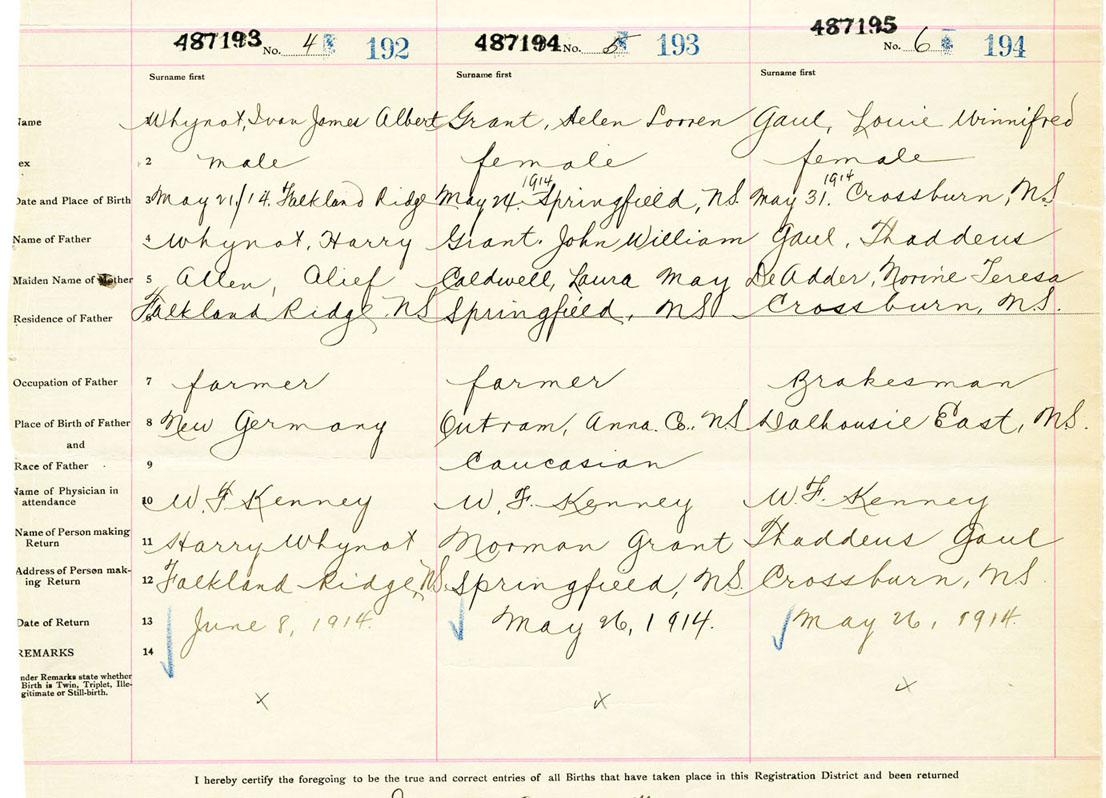 487193 No. 4 192 487194 No. 5 193 487195 No. 6 194
Surname first Surname first Surname first
Name 1 Whynot, Ivan James Albert Grant, Helen Lorren Gaul, Louie Winnifred
ex 2 male female female
Date and Place of Birth 3 May 21/14. Falkland Ridge May 24. 1914 Springfield, NS. May 31. 1914 Crossburn, NS
Name of Father 4 Whynot, Harry Grant. John William Gaul, Thaddeus
Maiden Name of Mother 5 Allen, Alief Caldwell, Laura May DeAdder, Norine Teresa
Residence of Father 6 Falkland Ridge, NS Springfield, NS Crossburn, N.S.
Occupation of Father 7 farmer farmer Brakesman
Place of Birth of Father 8 New Germany Outram, Anna. Co., NS Dalhousie East, NS.
and
Race of Father 9 Caucasian
Name of Physician in attendance 10 W. F. Kenney W. F. Kenney W. F. Kenney
Name of Person making Return 11 Harry Whynot Norman Grant Thaddeus Gaul
Address of Person making Return 12 Falkland Ridge, NS Springfield, NS Crossburn, NS.
Date of Return 13 June 8, 1914. May 26, 1914. May 26, 1914.
REMARKS 14
nder Remarks state whether
Birth is Twin, Triplet, Ille-
gitimate or Still-birth.
x x x
I hereby certify the foregoing to be the true and correct entries of all Births that have taken place in this Registration District and been returned